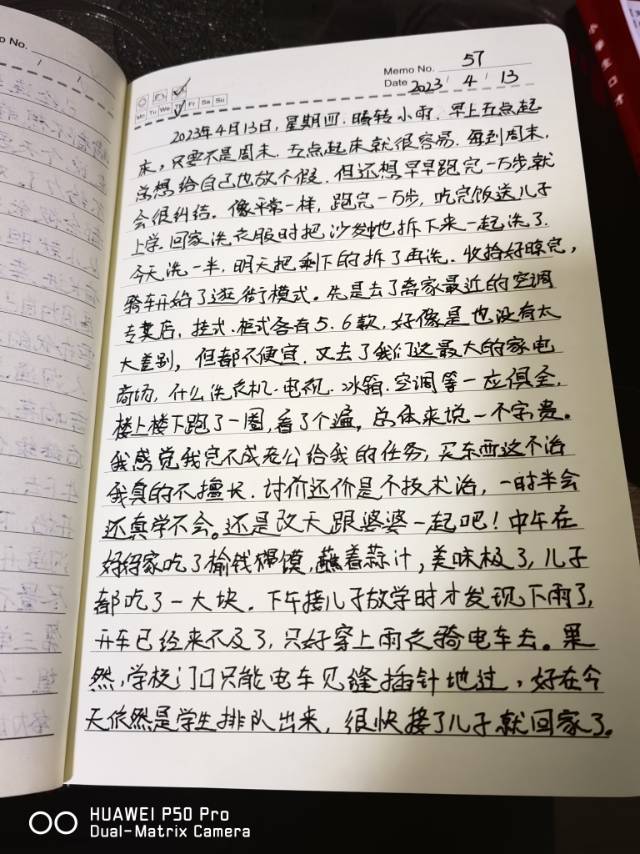 Memo No. 57
Date 2023 / 4 / 13
Mo Tu We Th Fr Sa Su
2023年4月13日,星期四.晴转小雨.早上五点起
床,只要不是周末.五点起床就很容易.每到周末,
总想给自己也放个假.但还想早早跑完一万步就
会很纠结.像平常一样,跑完一万步,吃完饭送儿子
上学.回家洗衣服时把沙发也拆下来一起洗了.
今天洗一半,明天把剩下的拆了再洗.收拾好晾完,
骑车开始了逛街模式。先是去了离家最近的空调
专卖店,挂式.柜式各有5.6款,好像是也没有太
大差别,但都不便宜.又去了我们这最大的家电
商场,什么洗衣机.电视.冰箱.空调等一应俱全,
楼上楼下跑了一圈,看了个遍,总体来说一个字贵。
我感觉我完不成老公给我的任务,买东西这个活
我真的不擅长.讨价还价是个技术活,一时半会
还真学不会。还是改天跟婆婆一起吧!中午在
好得家吃了榆钱馍,蘸着蒜汁,美味极了,儿子
都吃了一大块.下午接儿子放学时才发现下雨了,
开车已经来不及了,只好穿上雨衣骑电车去。果
然,学校门口只能电车见缝插针地过,好在今
天依然是学生排队出来,很快接了儿子就回家了。
HUAWEI P50 Pro
Dual-Matrix Camera